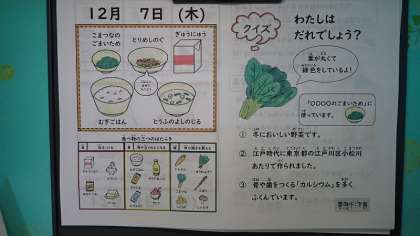 12月 7日 (木)
こまつなの
ごまいため
とりめしのぐ
ぎゅうにゅう
むぎごはん
とうふのよしのじる
食べ物の三つのはたらき
クイズ
わたしは
だれでしょう？
葉が丸くて
緑色をしているよ！
「〇〇〇〇のごまいため」に
使っています。
① 冬においしい野菜です。
② 江戸時代に東京都の江戸川区小松川
あたりで作られました。
③ 骨や歯をつくる「カルシウム」を多く
ふくんでいます。